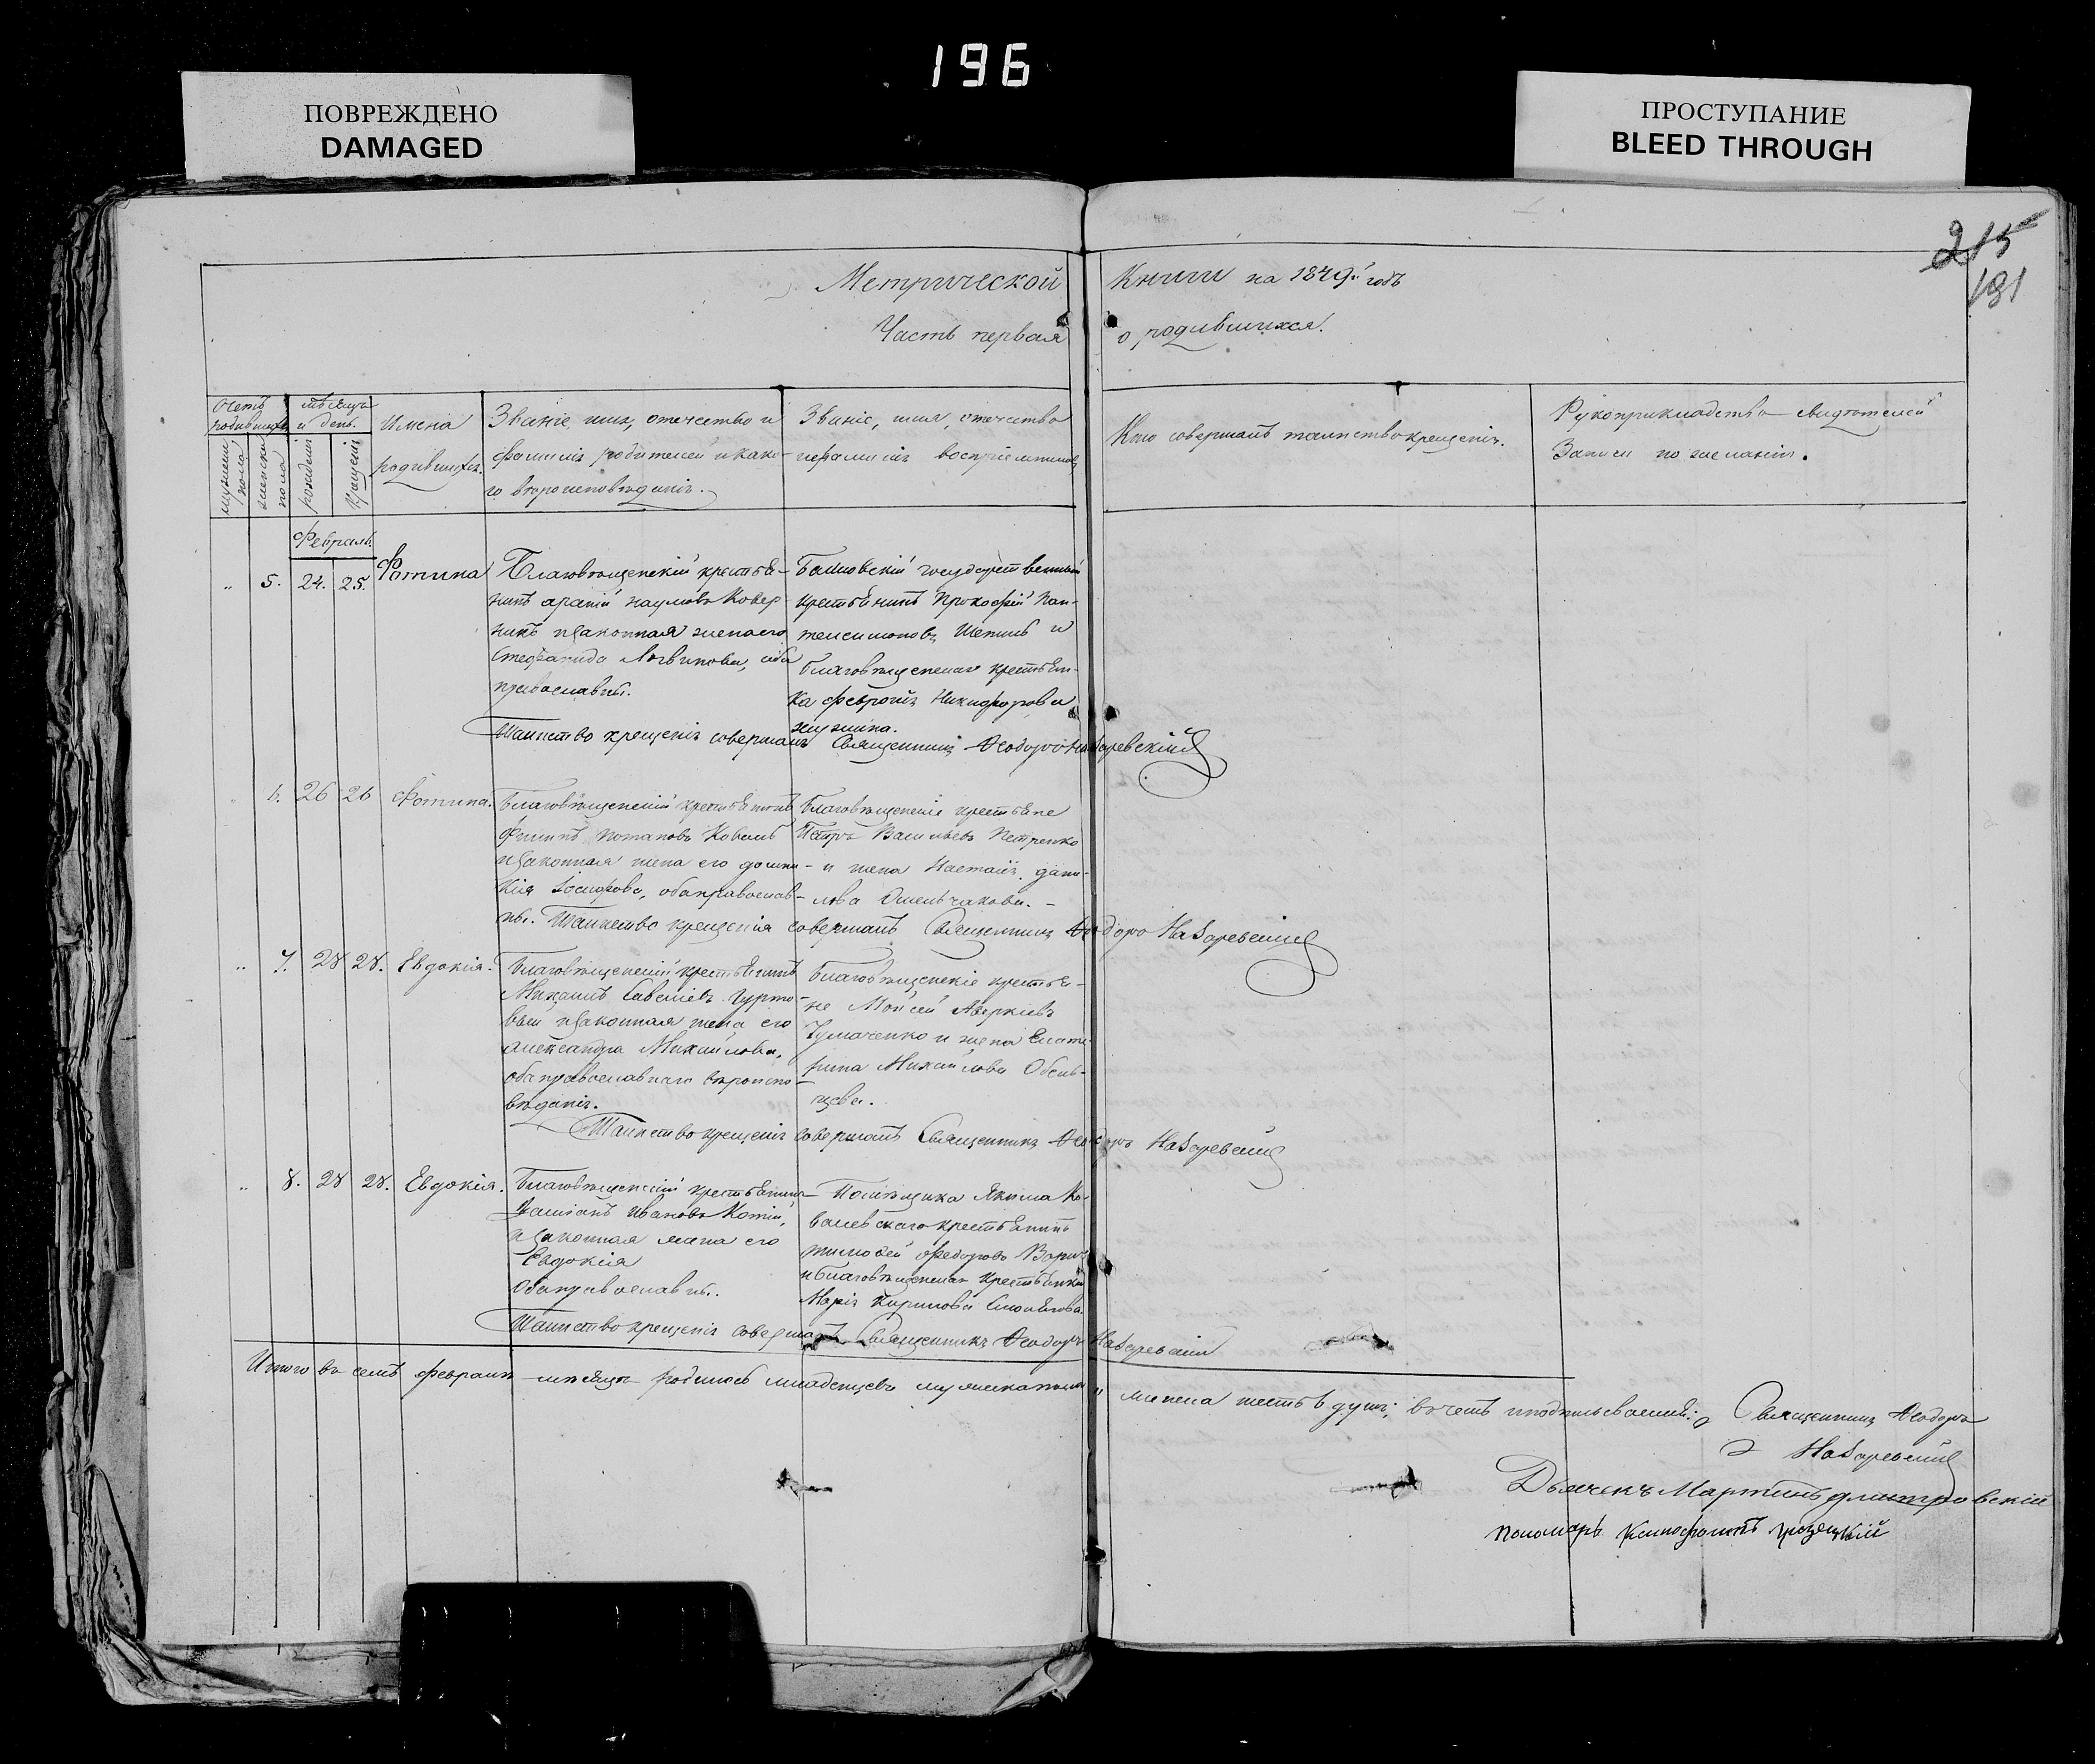 196
ПОВРЕЖДЕНО
DAMAGED
ПРОСТУПАНИЕ
BLEED THROUGH
215
191
Метрической Книги на 1849й годъ
Часть первая о родившихся.
Счетъ родившихся
мужеска пола
женска пола
мѣсяцъ и день.
рожденія
крещенія
Имена
родившихся.
Званіе, имя, отечество и
фамилія родителей и како-
го вѣроисповѣданія.
Званіе, имя, отечество
и фамилія воспріемниковъ
Кто совершалъ таинство крещенія.
Рукоприкладство свидѣтелей
Записи по желанію.
Февраль.
„ 5. 24. 25. Фотина
Благовѣщенскій крестья-
нинъ Наумовъ Ковер
никъ и законная жена его
Стефанида Логвинова, оба
православны.
государственный
крестьянинъ Прокофій Пан-
телеимоновъ и
благовѣщенская крестьян-
ка Февронія Никифорова
Таинство крещенія совершалъ Священникъ Ѳеодоръ Назаревскій
„ 6. 26 26 Фотина.
Благовѣщенскій крестьянинъ
Филипъ Потаповъ Коваль
и законная жена его домни-
кія Іосифова, оба православ-
ны.
Благовѣщенскіе крестьяне
Петръ Васильевъ Петренко
и жена Настасія дани-
лова Омельчакова.
Таинство крещенія совершалъ Священникъ Ѳеодоръ Назаревскій
„ 7. 28 28. Евдокія.
Благовѣщенскій крестьянинъ
Михаилъ Савеліевъ Гурто-
вый и законная жена его
Александра Михайлова,
оба православнаго вѣроиспо-
вѣданія.
Благовѣщенскіе крестья-
не Моисей Аверкіевъ
Чумаченко и жена Екате-
рина Михайлова
Таинство крещенія совершалъ Священникъ Ѳеодоръ Назаревскій
„ 8. 28 28. Евдокія.
Благовѣщенскій крестьянинъ
Даміанъ Ивановъ
и законная жена его
Евдокія
Оба православны.
Помѣщика Якима Ко-
валевскаго крестьянинъ
тимофей Федоровъ
и благовѣщенская крестьянка
Марія Кирилова
Таинство крещенія совершалъ Священникъ Ѳеодоръ Назаревскій
Итого въ семъ февралѣ мѣсяцѣ родилось младенцевъ мужеска пола „ женска шесть душъ; Священникъ Ѳеодоръ
Назаревскій
Дьячекъ Мартинъ дмитровскій
Пономарь Ксинофонтъ